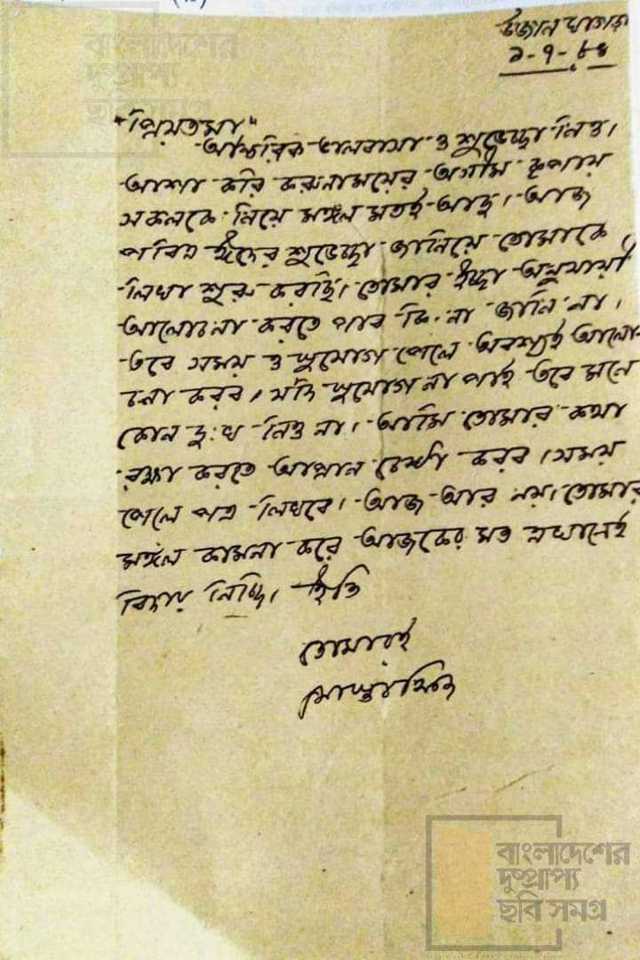 বাংলাদেশের
দুষ্প্রাপ্য
ছবি সমগ্র
উজান
৯-৭-৮৪
"প্রিয়তমা"
আন্তরিক ভালবাসা ও শুভেচ্ছা নিও।
আশা করি করুনাময়ের অসীম কৃপায়
সকলকে নিয়ে মঙ্গল মতই আছ। আজ
পবিত্র ঈদের শুভেচ্ছা জানিয়ে তোমাকে
লিখা শুরু করছি। তোমার ইচ্ছা অনুযায়ী
আলোচনা করতে পারব কি না জানি না।
তবে সময় ও সুযোগ পেলে অবশ্যই আলো-
চনা করব। যদি সুযোগ না পাই তবে মনে
কোন দুঃখ নিও না। আমি তোমার কথা
রক্ষা করতে আপ্রান চেষ্টা করব। সময়
পেলে পত্র লিখবে। আজ আর নয়। তোমার
মঙ্গল কামনা করে আজকের মত এখানেই
বিদায় নিচ্ছি। ইতি
তোমারই
বাংলাদেশের
দুষ্প্রাপ্য
ছবি সমগ্র